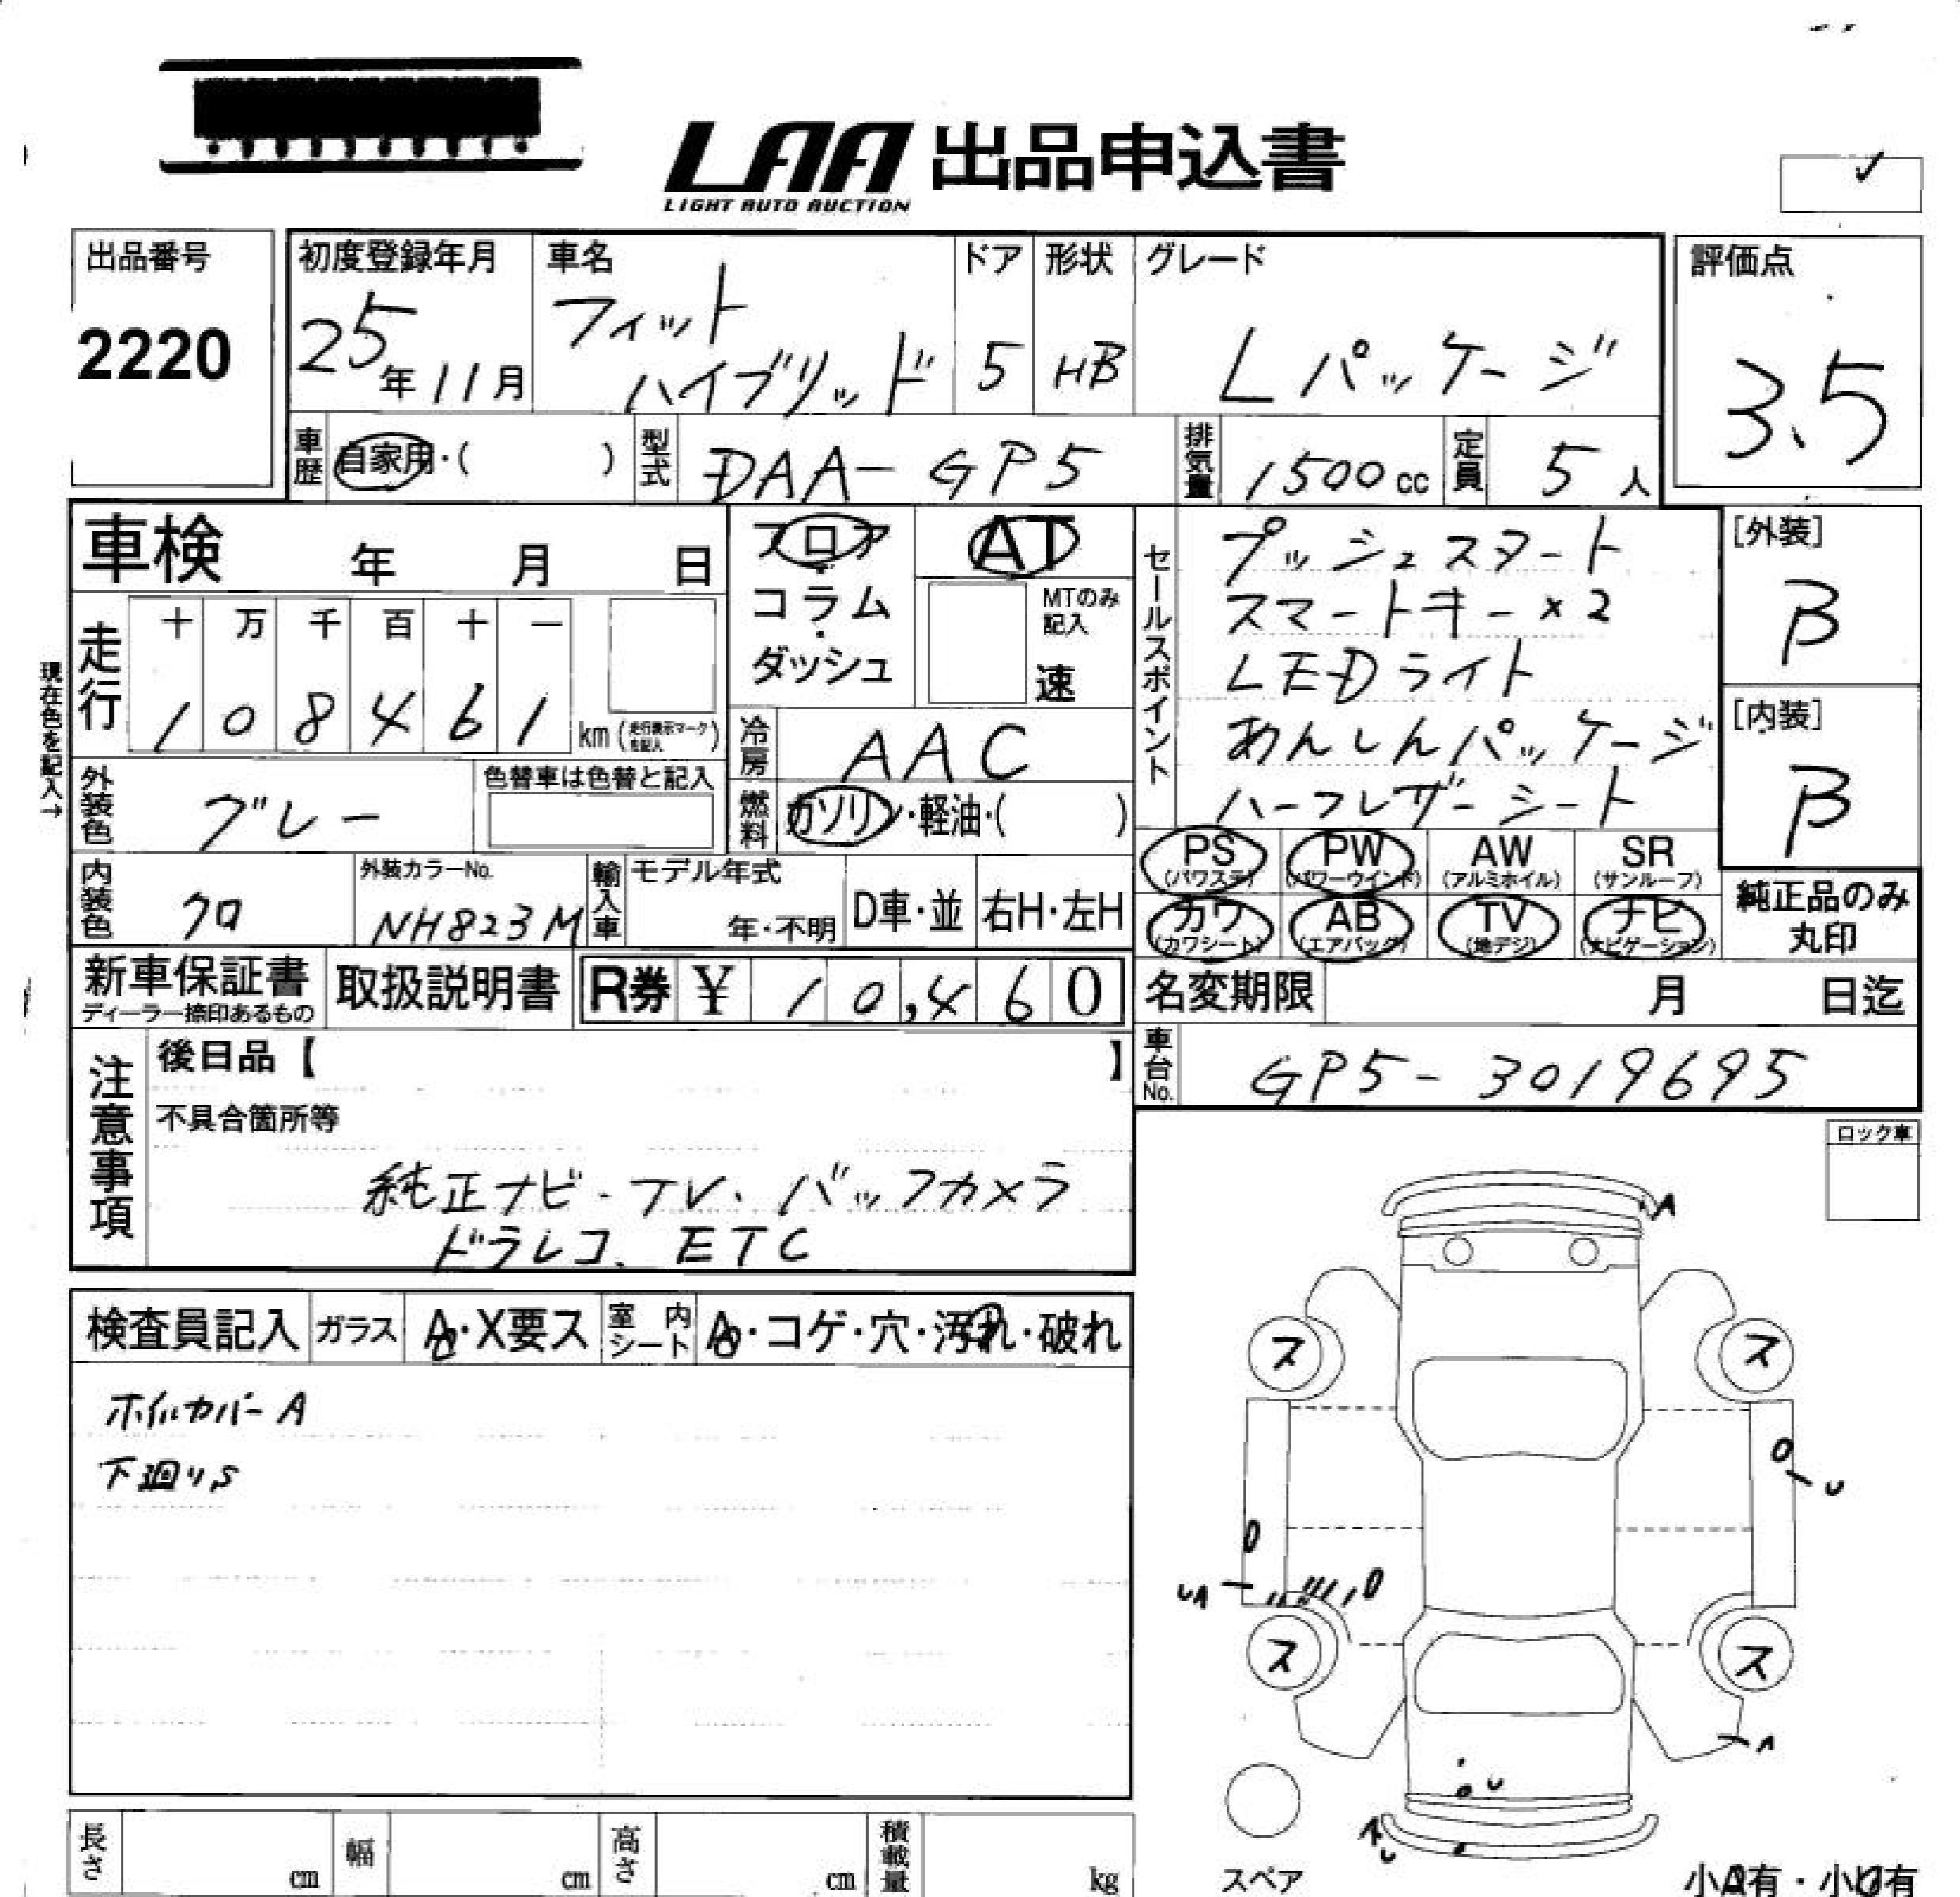 LAA 出品申込書
LIGHT AUTO AUCTION
出品番号
2220
初度登録年月
25年11月
車名
フィット
ハイブリッド
ドア
5
形状
HB
グレード
Lパッケージ
評価点
3.5
車歴
自家用・( )
型式
DAA-GP5
排気量
1500cc
定員
5人
車検 年 月 日
フロア・コラム・ダッシュ
AT
MTのみ記入
速
セールスポイント
プッシュスタート
スマートキー×2
LEDライト
あんしんパッケージ
ハーフレザーシート
[外装]
B
[内装]
B
現在色を記入→
走行
十 万 千 百 十 一
1 0 8 4 6 1 km
冷房
AAC
外装色
グレー
色替車は色替と記入
燃料
ガソリン・軽油・( )
内装色
クロ
外装カラーNo.
NH823M
輸入車
モデル年式
年・不明
D車・並
右H・左H
PS (パワステ)
PW (パワーウインド)
AW (アルミホイル)
SR (サンルーフ)
カワ (カワシート)
AB (エアバッグ)
TV (地デジ)
ナビ (ナビゲーション)
純正品のみ
丸印
新車保証書
ディーラー捺印あるもの
取扱説明書
R券 ¥ 10,460
名変期限 月 日迄
車台No.
GP5-3019695
注意事項
後日品【 】
不具合箇所等
純正ナビ・TV、バックカメラ
ドラレコ、ETC
ロック車
検査員記入
ガラス
A・X要ス
室内シート
A・コゲ・穴・汚れ・破れ
ホイルカバーA
下廻りS
A
ス
ス
U
UA
ス
ス
A
U
A
U
スペア
小A有・小U有
長さ cm
幅 cm
高さ cm
積載量 kg